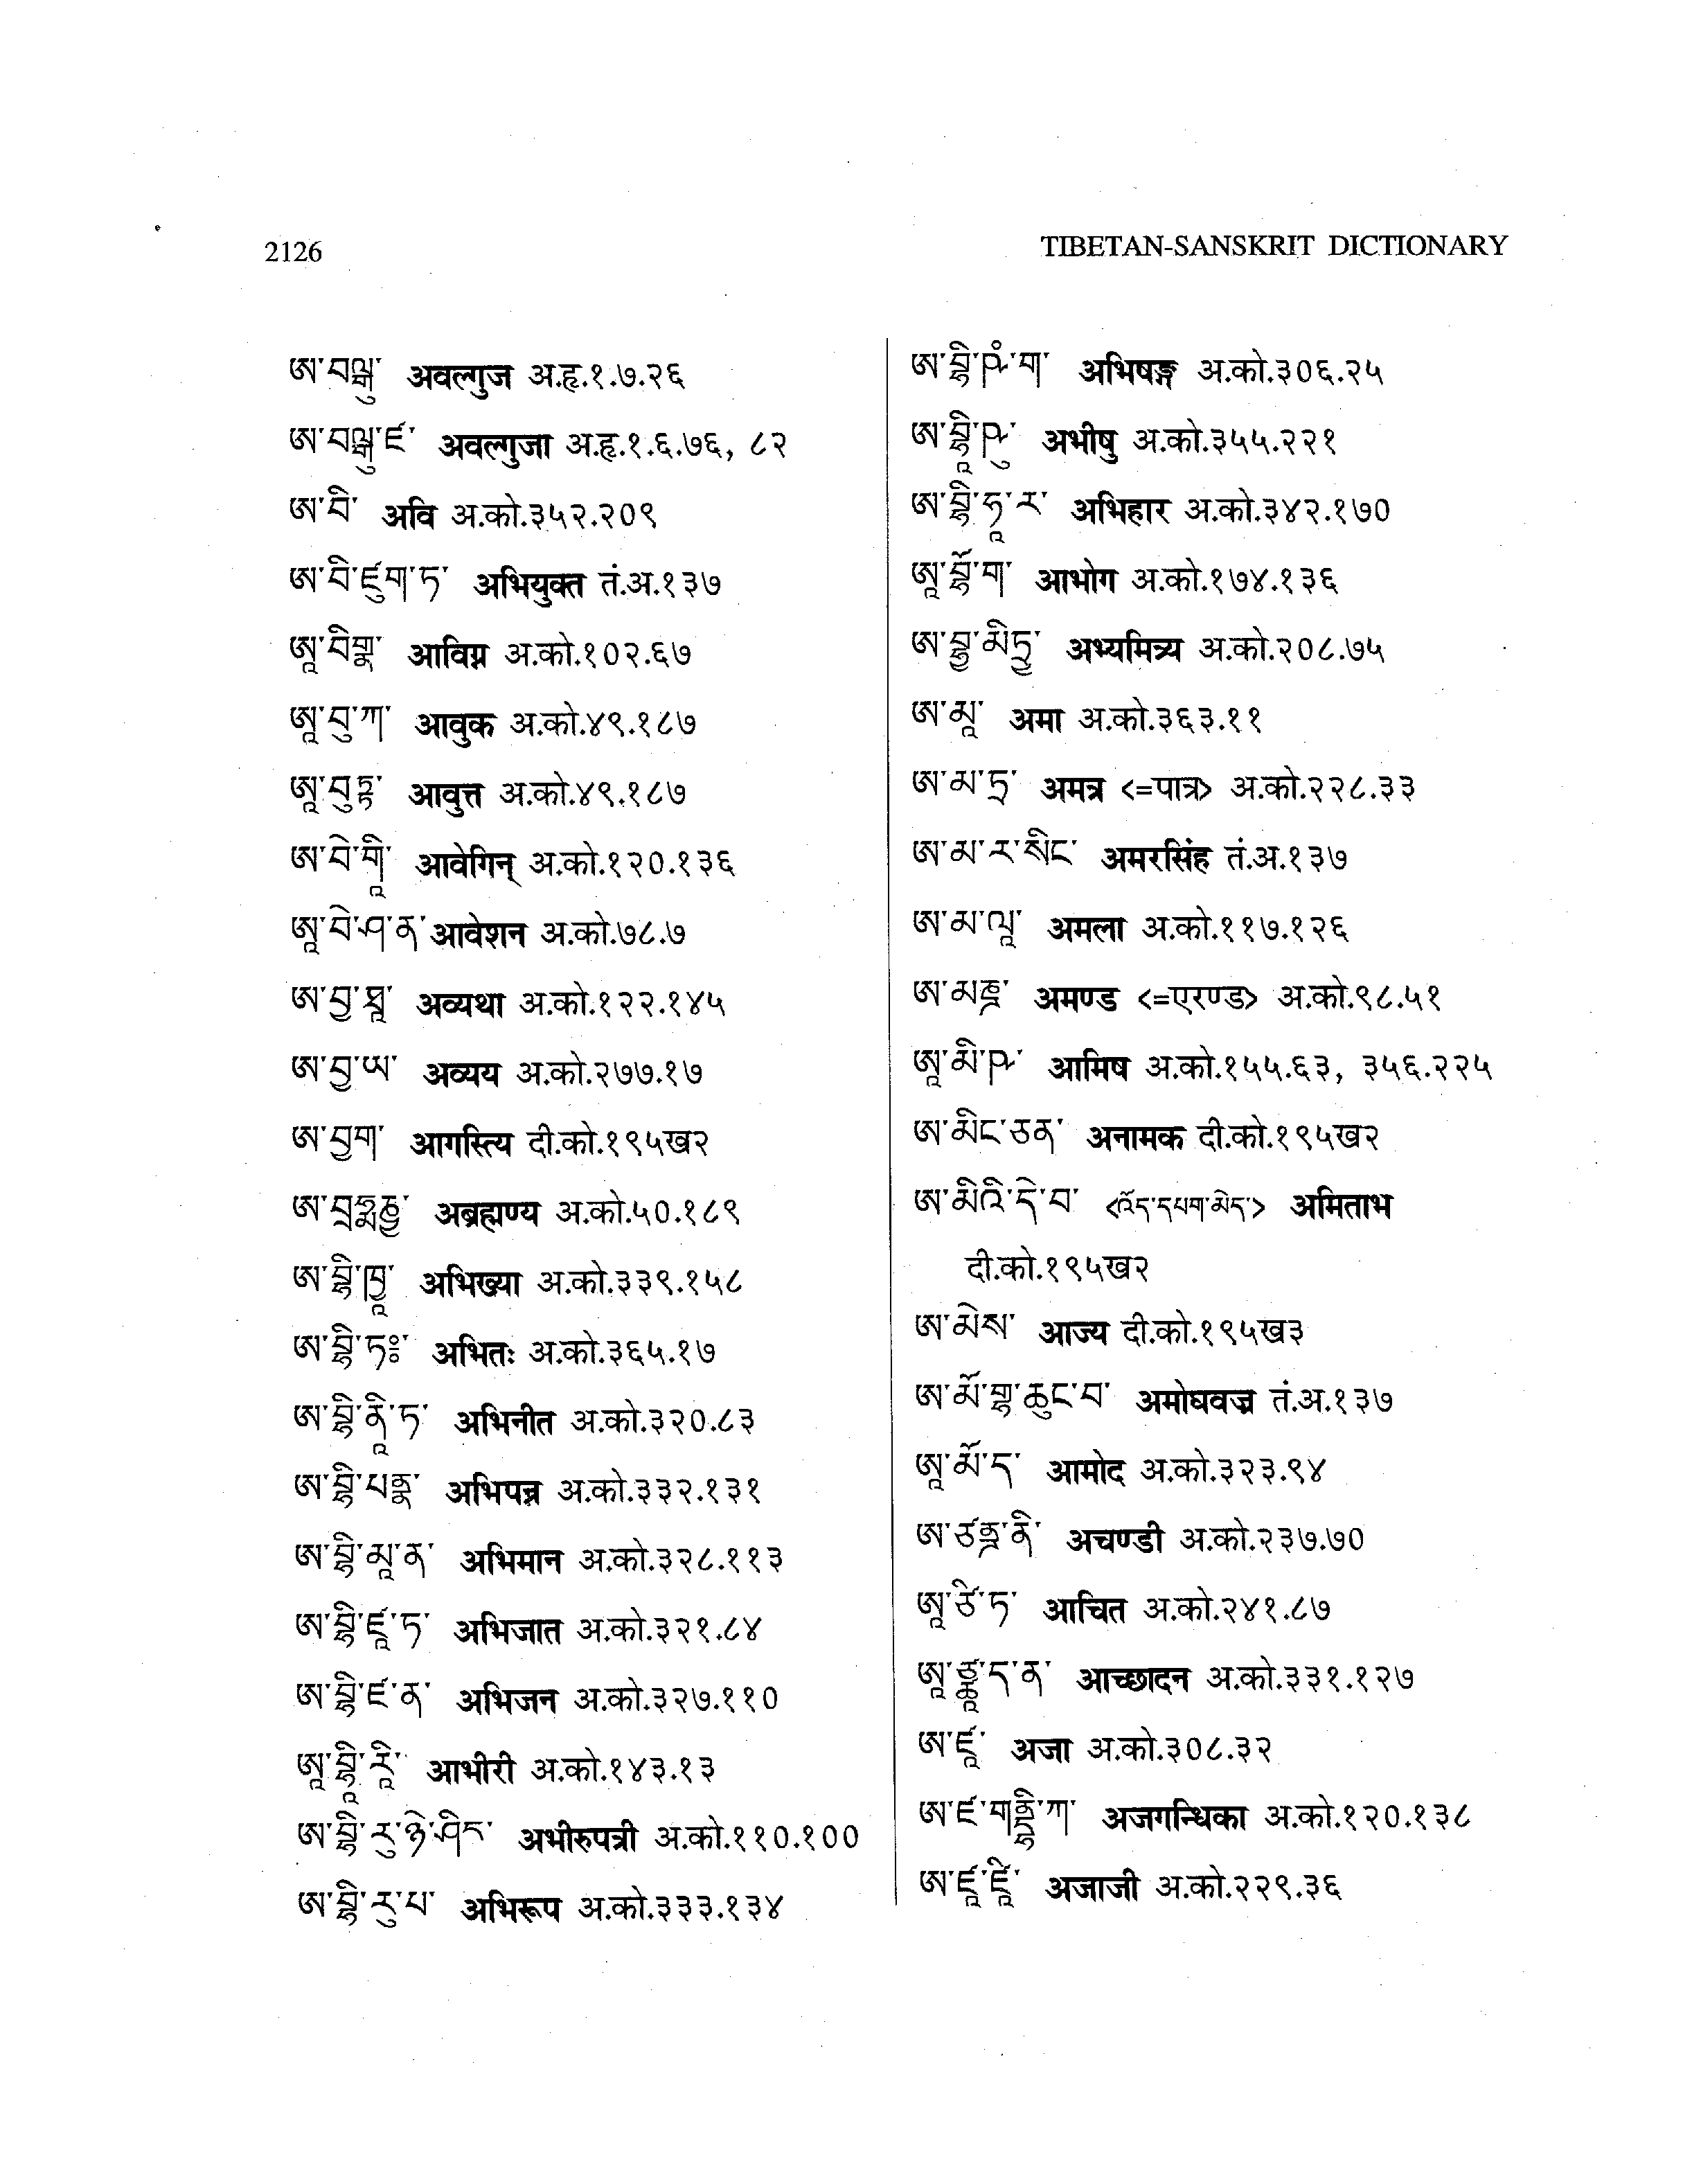 2126
TIBETAN-SANSKRIT DICTIONARY
ཨ་བལྒུ་ अवल्गुज अ.हृ.१.७.२६
ཨ་བལྒུ་ཛ་ अवल्गुजा अ.हृ.१.६.७६, ८२
ཨ་བི་ अवि अ.को.३५२.२०९
ཨ་བི་ཛུག་ཏ་ अभियुक्त तं.अ.१३७
ཨཱ་བིགྣ་ आविग्न अ.को.१०२.६७
ཨཱ་བུ་ཀ་ आवुक अ.को.४९.१८७
ཨཱ་བུཏྟ་ आवुत्त अ.को.४९.१८७
ཨ་བེ་གཱི་ आवेगिन् अ.को.१२०.१३६
ཨཱ་བེ་ཤ་ན་ आवेशन अ.को.७८.७
ཨ་བྱ་ཐཱ་ अव्यथा अ.को.१२२.१४५
ཨ་བྱ་ཡ་ अव्यय अ.को.२७७.१७
ཨ་བྱག་ आगस्त्यि दी.को.१९५ख२
ཨ་བྲཧྨཎྱ་ अब्रह्मण्य अ.को.५०.१८९
ཨ་བྷི་ཁྱཱ་ अभिख्या अ.को.३३९.१५८
ཨ་བྷི་ཏཿ་ अभितः अ.को.३६५.१७
ཨ་བྷི་ནཱི་ཏ་ अभिनीत अ.को.३२०.८३
ཨ་བྷི་པནྣ་ अभिपन्न अ.को.३३२.१३१
ཨ་བྷི་མཱ་ན་ अभिमान अ.को.३२८.११३
ཨ་བྷི་ཛཱ་ཏ་ अभिजात अ.को.३२१.८४
ཨ་བྷི་ཛ་ན་ अभिजन अ.को.३२७.११०
ཨཱ་བྷཱི་རཱི་ आभीरी अ.को.१४३.१३
ཨ་བྷི་རུ་ཉེ་ཤིང་ अभीरुपत्री अ.को.११०.१००
ཨ་བྷི་རུ་པ་ अभिरूप अ.को.३३३.१३४
ཨ་བྷི་ཥཾ་ག་ अभिषङ्ग अ.को.३०६.२५
ཨ་བྷཱི་ཥུ་ अभीषु अ.को.३५५.२२१
ཨ་བྷི་ཧཱ་ར་ अभिहार अ.को.३४२.१७०
ཨཱ་བྷོ་ག་ आभोग अ.को.१७४.१३६
ཨ་བྷྱ་མིཏྲྱ་ अभ्यमित्र्य अ.को.२०८.७५
ཨ་མཱ་ अमा अ.को.३६३.११
ཨ་མ་ཏྲ་ अमत्र <=पात्र> अ.को.२२८.३३
ཨ་མ་ར་སིང་ अमरसिंह तं.अ.१३७
ཨ་མ་ལཱ་ अमला अ.को.११७.१२६
ཨ་མཎྜ་ अमण्ड <=एरण्ड> अ.को.९८.५१
ཨཱ་མི་ཥ་ आमिष अ.को.१५५.६३, ३५६.२२५
ཨ་མིང་ཅན་ अनामक दी.को.१९५ख२
ཨ་མིའི་དེ་བ་ <འོད་དཔག་མེད་> अमिताभ
दी.को.१९५ख२
ཨ་མེས་ आज्य दी.को.१९५ख३
ཨ་མོ་གྷ་ཆུང་བ་ अमोघवज्र तं.अ.१३७
ཨཱ་མོ་ད་ आमोद अ.को.३२३.९४
ཨ་ཙཎྜ་ནི་ अचण्डी अ.को.२३७.७०
ཨཱ་ཙི་ཏ་ आचित अ.को.२४१.८७
ཨཱ་ཙྪཱ་ད་ན་ आच्छादन अ.को.३३१.१२७
ཨ་ཛཱ་ अजा अ.को.३०८.३२
ཨ་ཛ་གནྡྷི་ཀ་ अजगन्धिका अ.को.१२०.१३८
ཨ་ཛཱ་ཛཱི་ अजाजी अ.को.२२९.३६